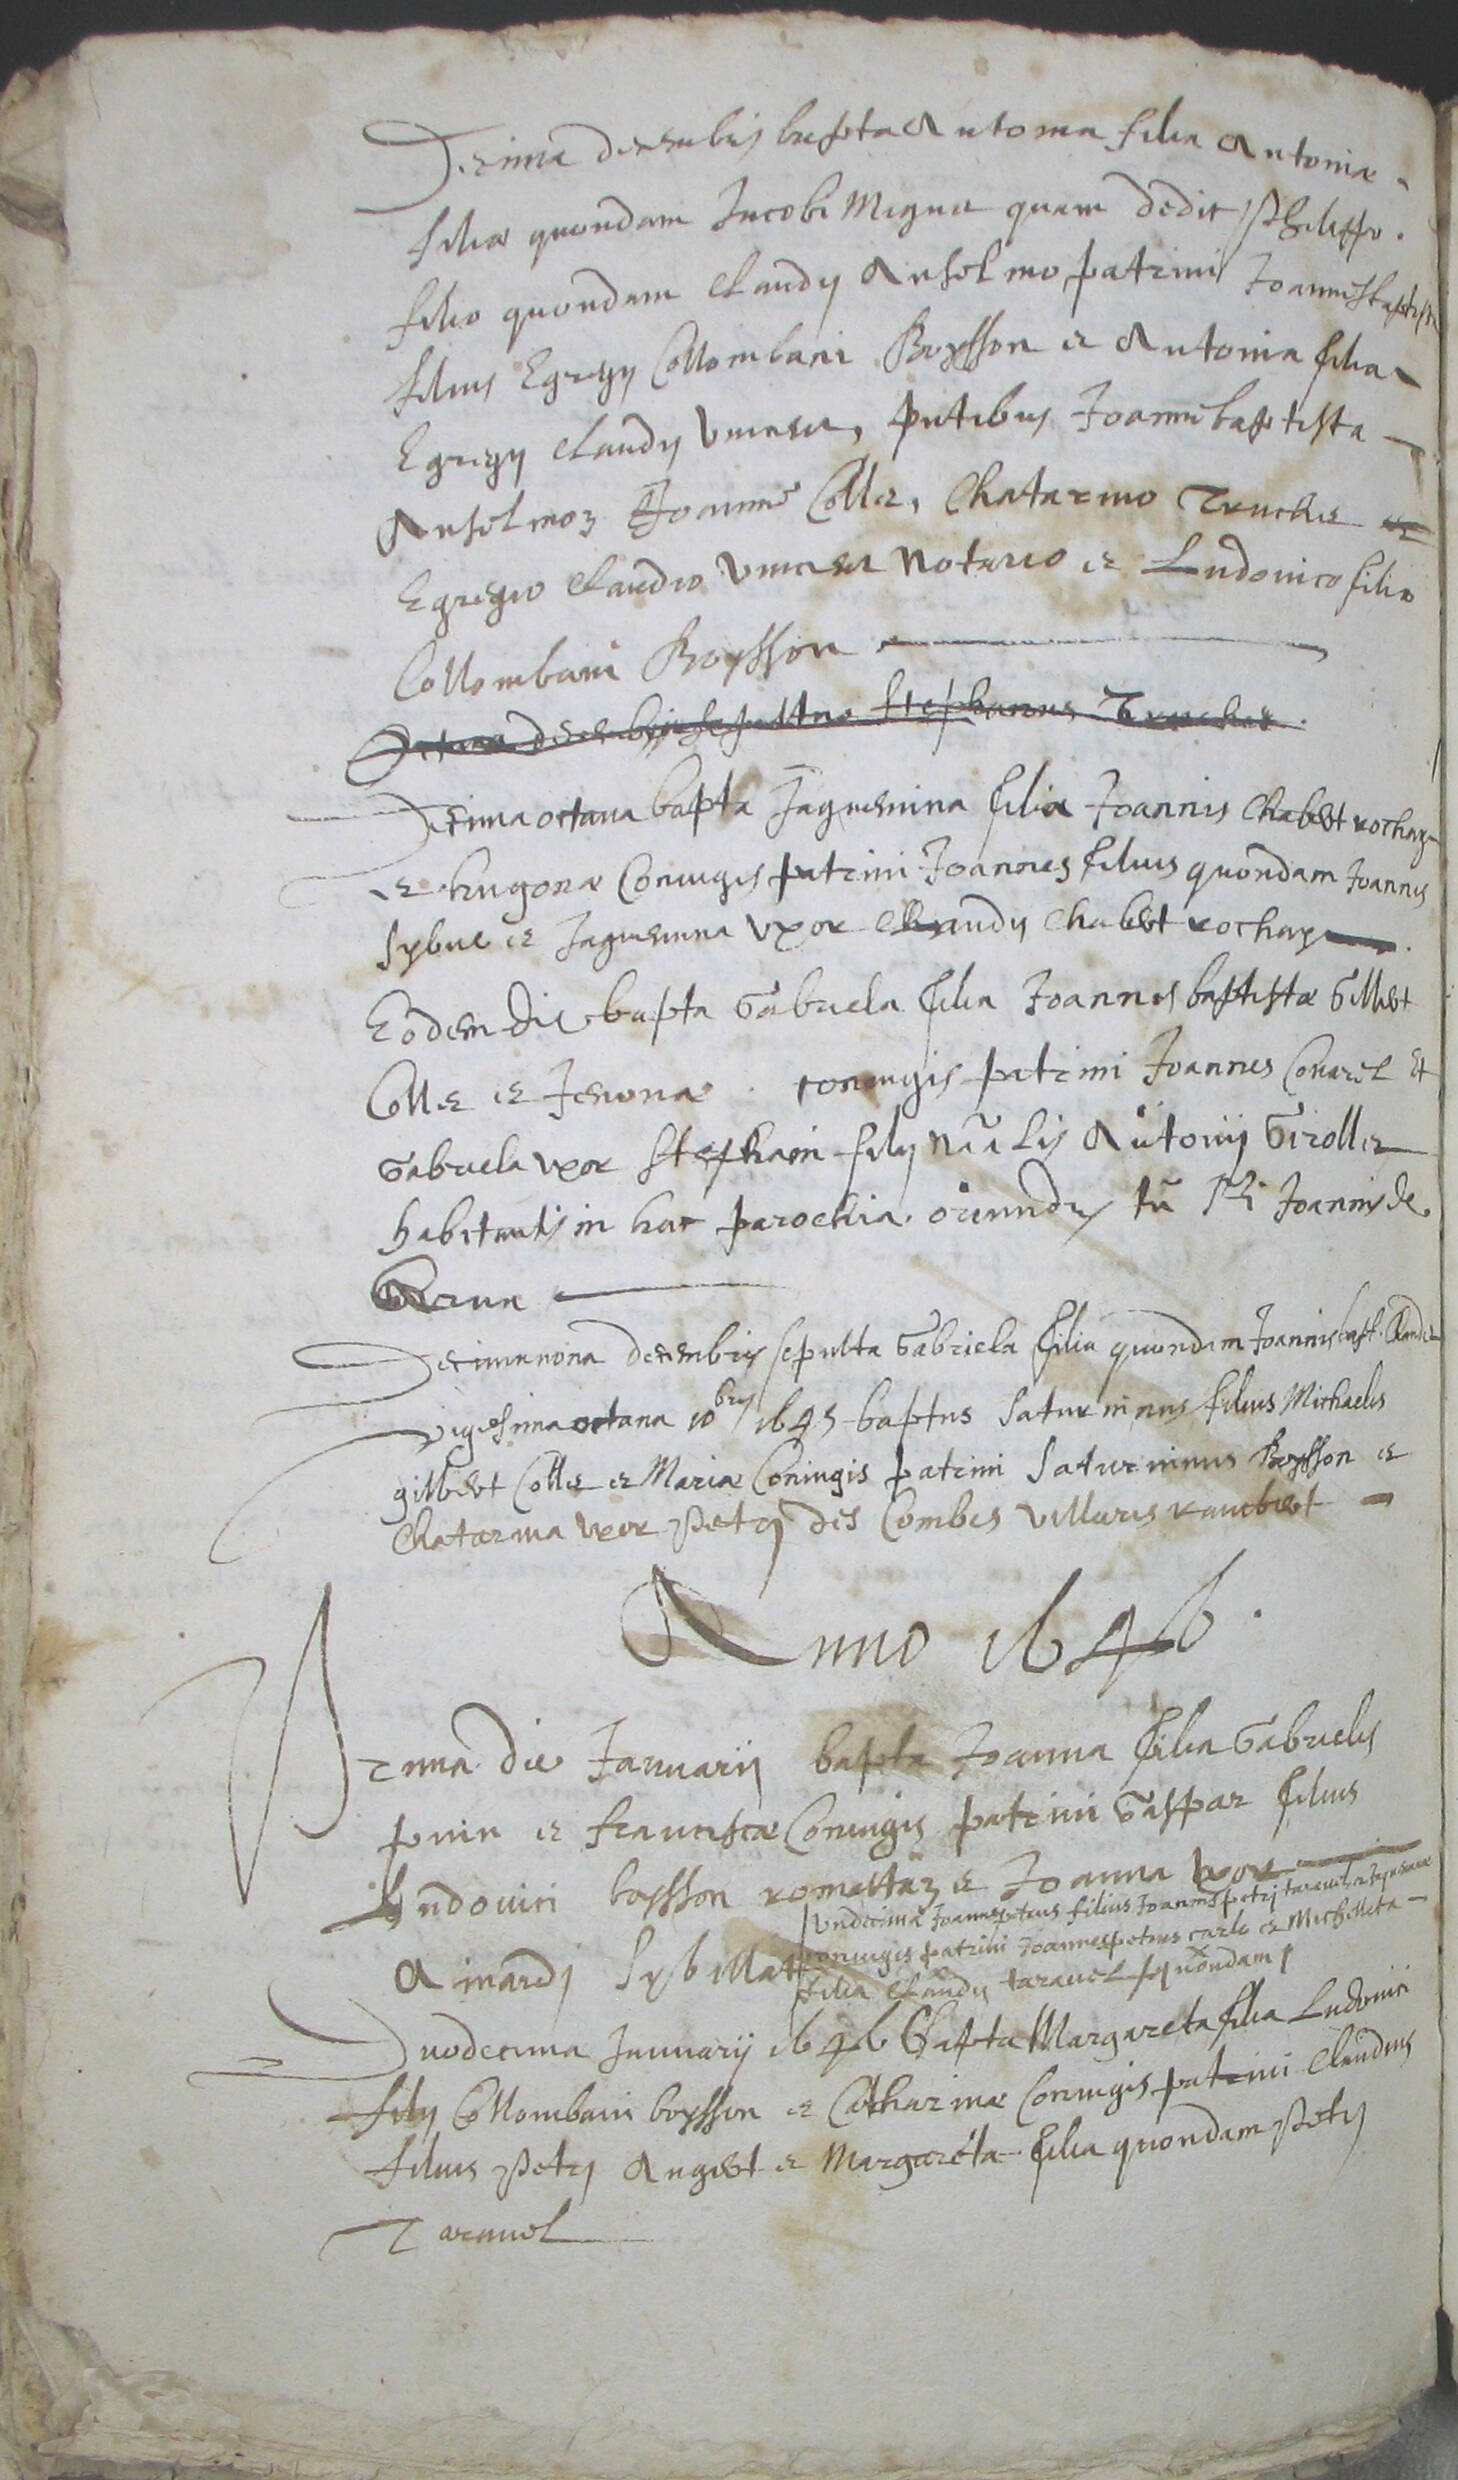 Decima decembris bapta Antonia filia Antoniæ
filiæ quondam Jacobi Magnin quam dedit Philippo
filio quondam Claudij Anselmo patrini Joannesbaptista
filius Egregij Collombani Boysson et Antonia filia
Egregij Claudij Vincent, pntibus Joanne baptista
Anselmoz Joanne Collet, Chatarino Truchet et
Egregio Claudio Vincent Notario et Ludovico filio
Collombani Boysson
Octava decembris sepultus Stephanus Truchet
Decima octava bapta Jaquemina filia Joannis Chabert rochay
et hugonæ Coniugis patrini Joannes filius quondam Joannis
Sybue et Jaquemina uxor Claudij Chabert rochay
Eodem die bapta Gabriela filia Joannes baptistæ Gilbert
Collet et Jenonæ coniugis patrini Joannes Covarel Et
Gabriela uxor Stephani filij nãalis Antonij Girollet
habitantis in hac parochia oriundus tñ Sti Joannis de
Arua
Decimanona decembris sepulta Gabriela filia quondam Joannisbapt.
Vigesima octava 10bris 1645 baptus Saturninus filius Michaelis
gilbert Collet et Mariæ Coniugis patrini Saturninus Boysson et
Chatarina uxor Petri des Combes Villaris rambert
Anno 1646.
Prima die Januarij bapta Joanna filia Gabrielis
puin et franciscæ Coniugis patrini Gaspar filius
Ludovici boysson romettaz et Joanna uxor
Aimardi Sybillat
Undecima Joannespetrus filius Joannispetri taravel et Jaquemæ
coniugis patrini Joannespetrus carle et Micheleta
filia Claudij taravel quondam
Duodecima Januarij 1646 bapta Margareta filia Ludovici
filij Collombani boysson et Catharinæ Coniugis patrini Claudius
filius Petri Augert et Margareta filia quondam Petri
Taravel